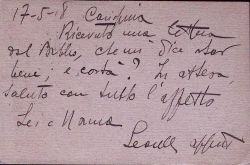 17-5-18 Candinia
Ricevuto una lettera
del Babbo, che mi dice star
bene; e costà? In attesa,
saluto con tutto l'affetto
Lei e Mamma